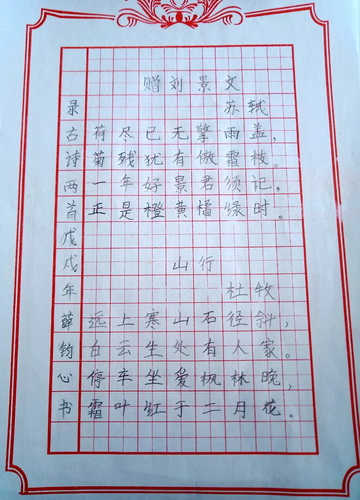 赠刘景文
苏轼
荷尽已无擎雨盖，
菊残犹有傲霜枝。
一年好景君须记，
正是橙黄橘绿时。
山行
杜牧
远上寒山石径斜，
白云生处有人家。
停车坐爱枫林晚，
霜叶红于二月花。
录古诗两首戊戌年薛钧心书